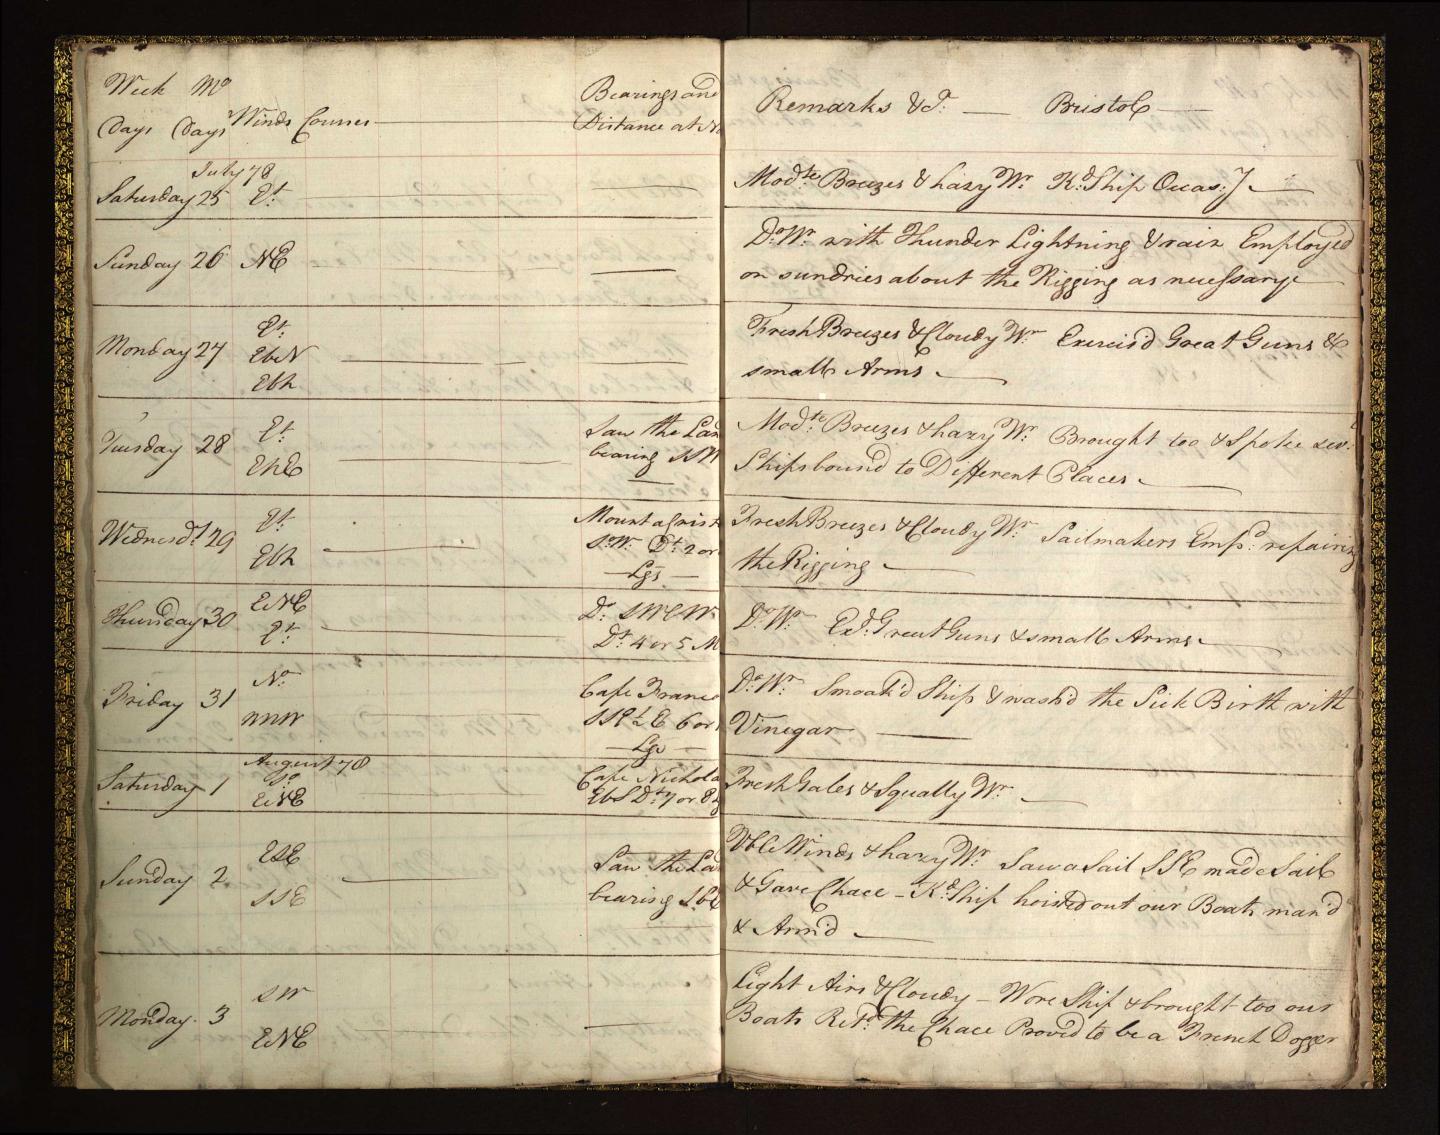 Week Mo Bearings and Remarks &c. Bristol
Days Days Winds Courses Distance at No
July 78
Saturday 25 Et. Modte. Breezes & hazy Wr. Kd. Ship Occas:y
Sunday 26 NE Do. Wr. with Thunder Lightning & rain Employed
on sundries about the Rigging as necessary
Monday 27 Et. Fresh Breezes & Cloudy Wr Exercis'd Great Guns &
EbN small Arms
Tuesday 28 Et. Saw the Lan Modte. Breezes & hazy Wr. Brought too & Spoke sev.
bearing SSW Ships bound to Different Places
Wednesd. 29 Et. Mount a Crist Fresh Breezes & Cloudy Wr. Sailmakers Empd. repairing
So. Wt. Dt. 2 or the Rigging
Lgs
Thursday 30 ENE Do. SWbW Do. Wr. Exd. Great Guns & small Arms
Et. Dt. 4 or 5 M
Friday 31 No. Cape Franc Do. Wr. Smoak'd Ship & wash'd the Sick Birth with
NNW 6 or Vinegar
Lgs
August 78
Saturday 1 So Cape Nichola Fresh Gales & Squally Wr.
ENE EbS Dt. 7 or 8
Sunday 2 ESE Saw the La Vble Winds & hazy Wr. Saw a Sail SSE made Sail
SSE bearing & Gave Chace - Kd. Ship hoisted out our Boats man'd
& Arm'd
Monday 3 SW Light Airs & Cloudy - Wore Ship & brought too our
ENE Boats Retd. the Chace Proved to be a French Dogger